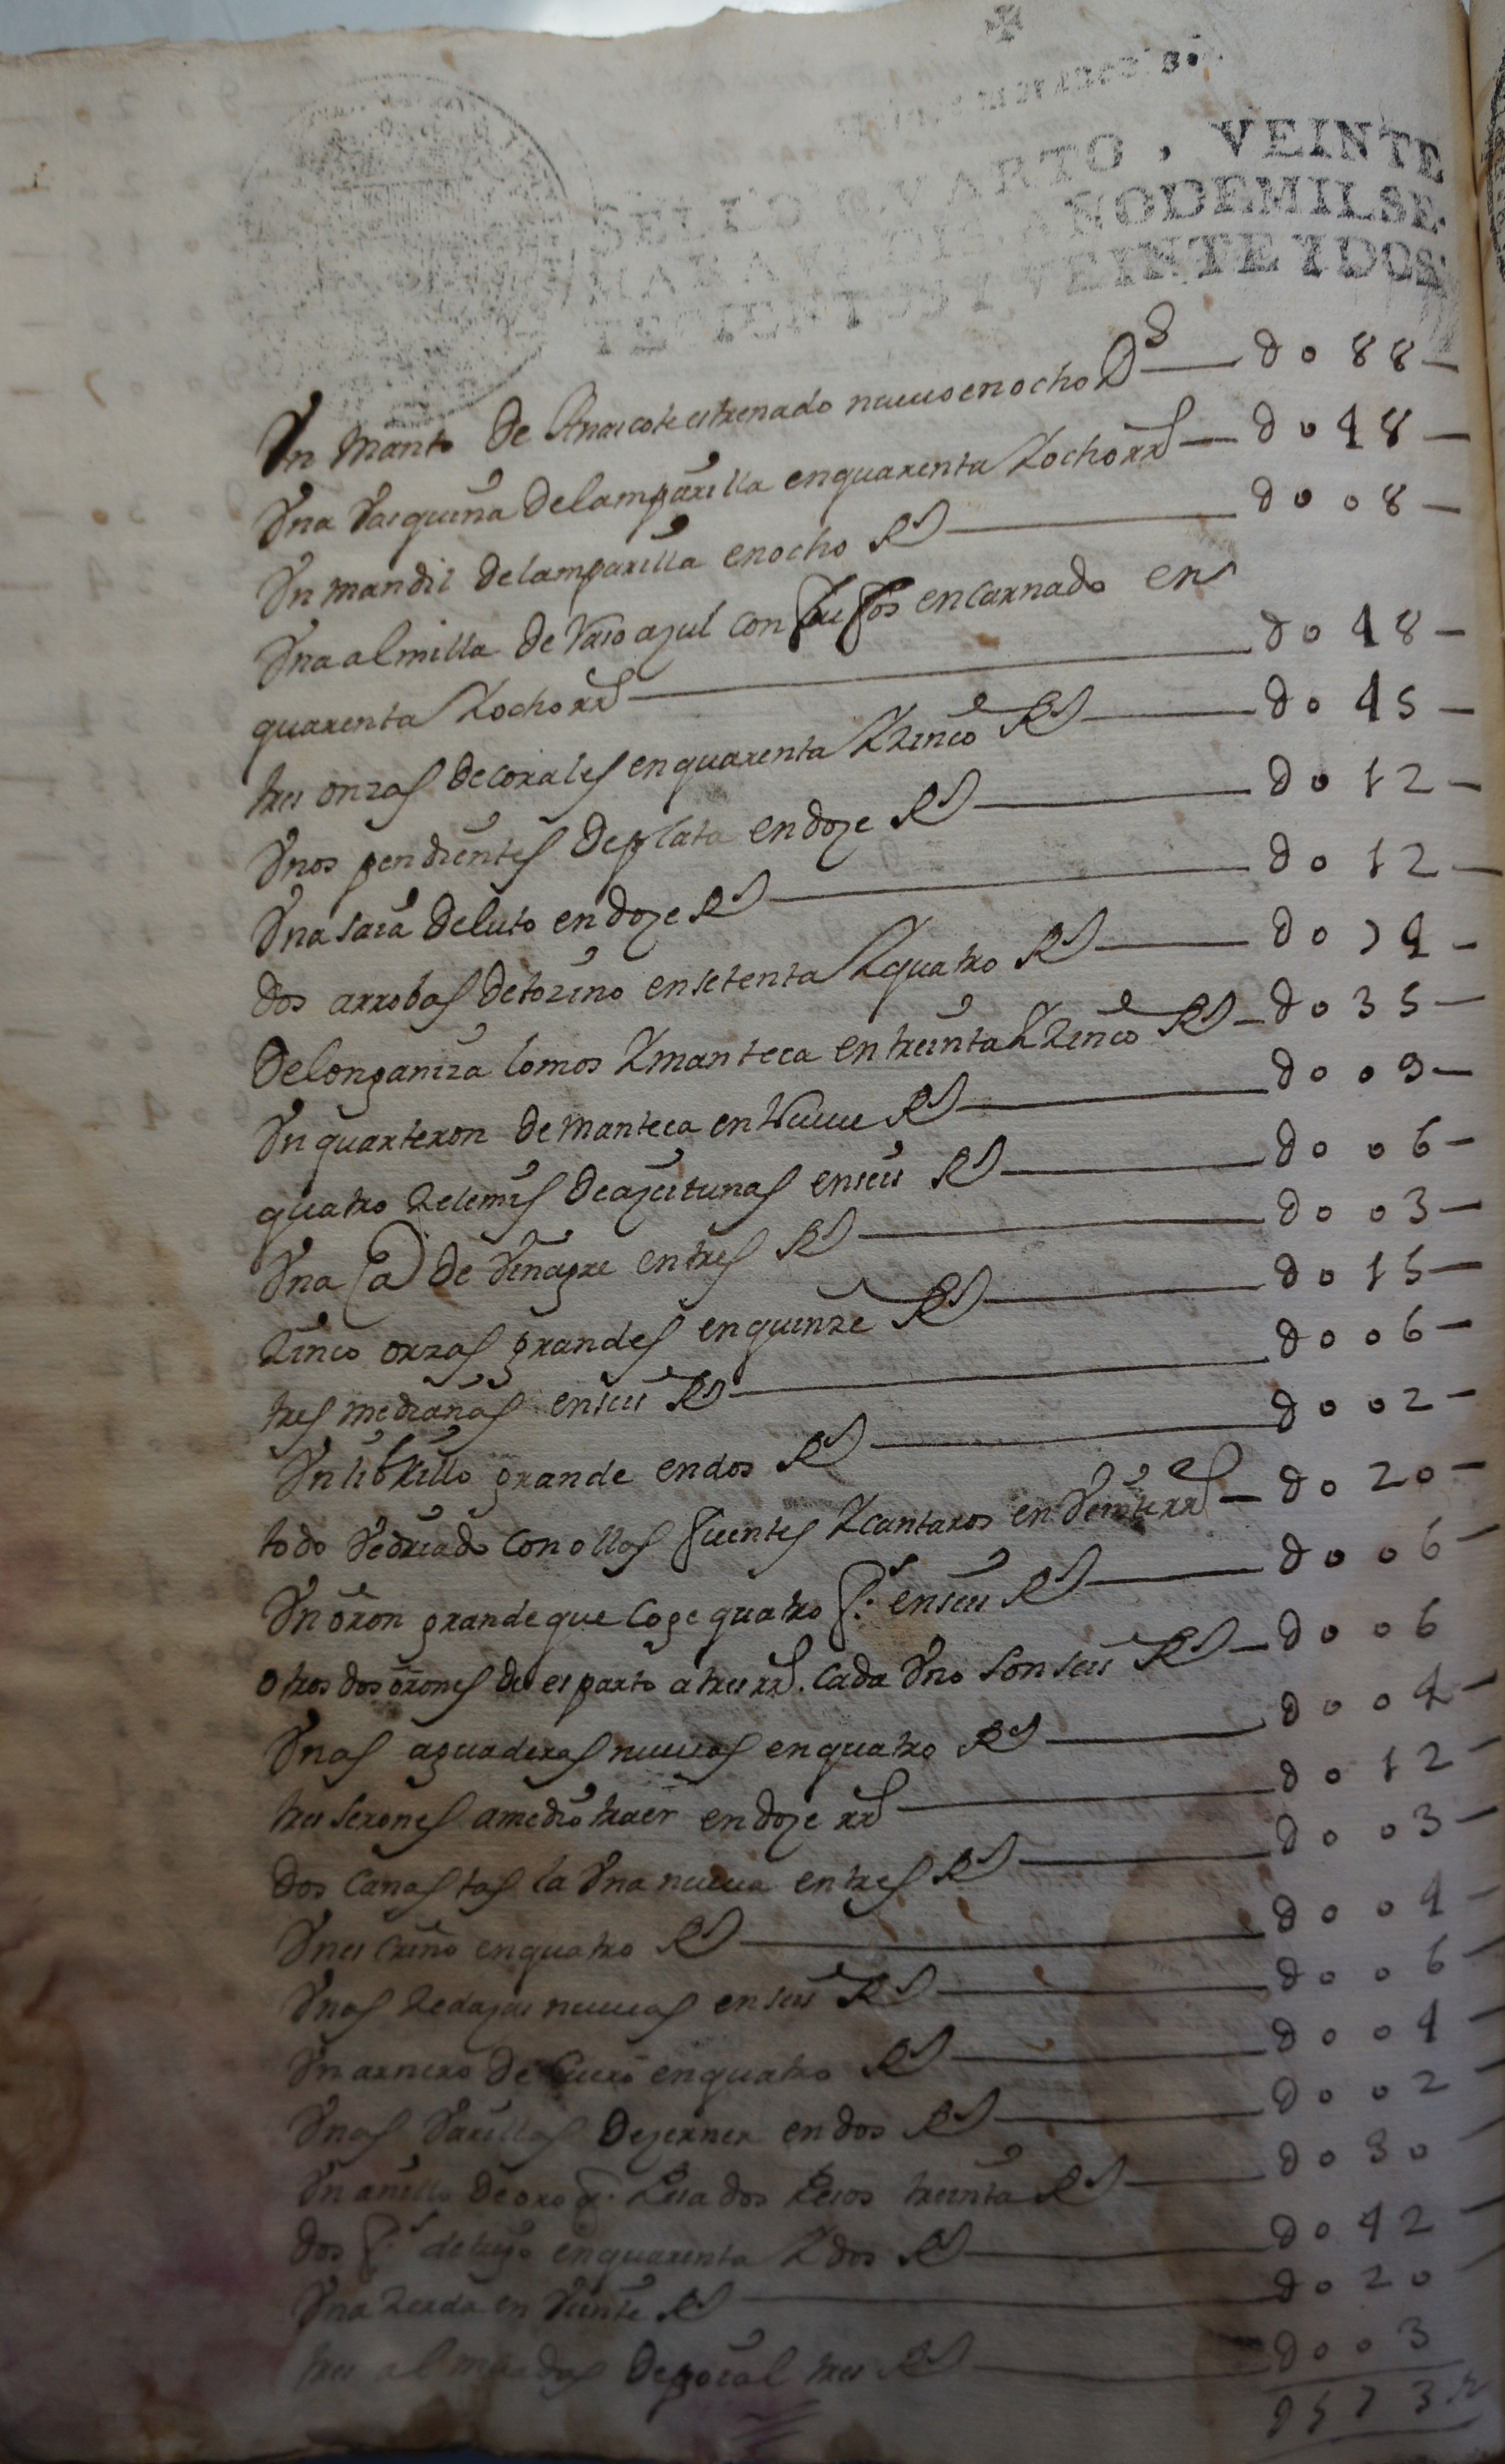 SELLO QVARTO, VEINTE
MARAVEDIS, AÑO DE MIL SE-
TECIENTOS Y VEINTE Y DOS.
Vn manto de Anascote estrenado nueuo en ocho Ds — do88 —
Vna Vasquiña de lamparilla en quarenta Y ocho rrs — do48 —
Vn mandil de lamparilla en ocho Rs — doo8 —
Vna almilla de Vaio azul con encarnado en
quarenta Y ocho rrs — do48 —
tres onzas de corales en quarenta Y zinco Rs — do45 —
Vnos pendientes de plata en doze Rs — do12 —
Vna saia de luto en doze Rs — do12 —
dos arrobas de tozino en setenta Y quatro Rs — do74 —
De longaniza lomos Y manteca en treinta Y zinco Rs — do35 —
Vn quarteron de manteca en Nueue Rs — doo9 —
quatro zelemis de azeitunas en seis Rs — doo6 —
Vna @ de Vinagre en tres Rs — doo3 —
Zinco orzas grandes en quinze Rs — do15 —
tres medianas en seis Rs — doo6 —
Vn librillo grande en dos Rs — doo2 —
todo Vedriado con ollas fuentes Y cantaros en Veinte rrs — do20 —
Vn oron grande que coge quatro fs. en seis Rs — doo6 —
otros dos orones de esparto a tres rrs. cada Vno son seis Rs — doo6
Vnas aguaderas nueuas en quatro Rs — doo4 —
tres serones a medio traer en doze rrs — do12 —
dos canastas la Vna nueua en tres Rs — doo3 —
Vn escriño en quatro Rs — doo4 —
Vnas zedazas nueuas en seis Rs — doo6 —
Vn arnero de Cuero en quatro Rs — doo4 —
Vnas Varillas de zerner en dos Rs — doo2 —
Vn anillo de oro q. Pesa dos Pesos treinta Rs — do30
dos fs. de trigo en quarenta Y dos Rs — do42 —
Vna zerda en Veinte Rs — do20 —
tres almuadas de tres Rs — doo3